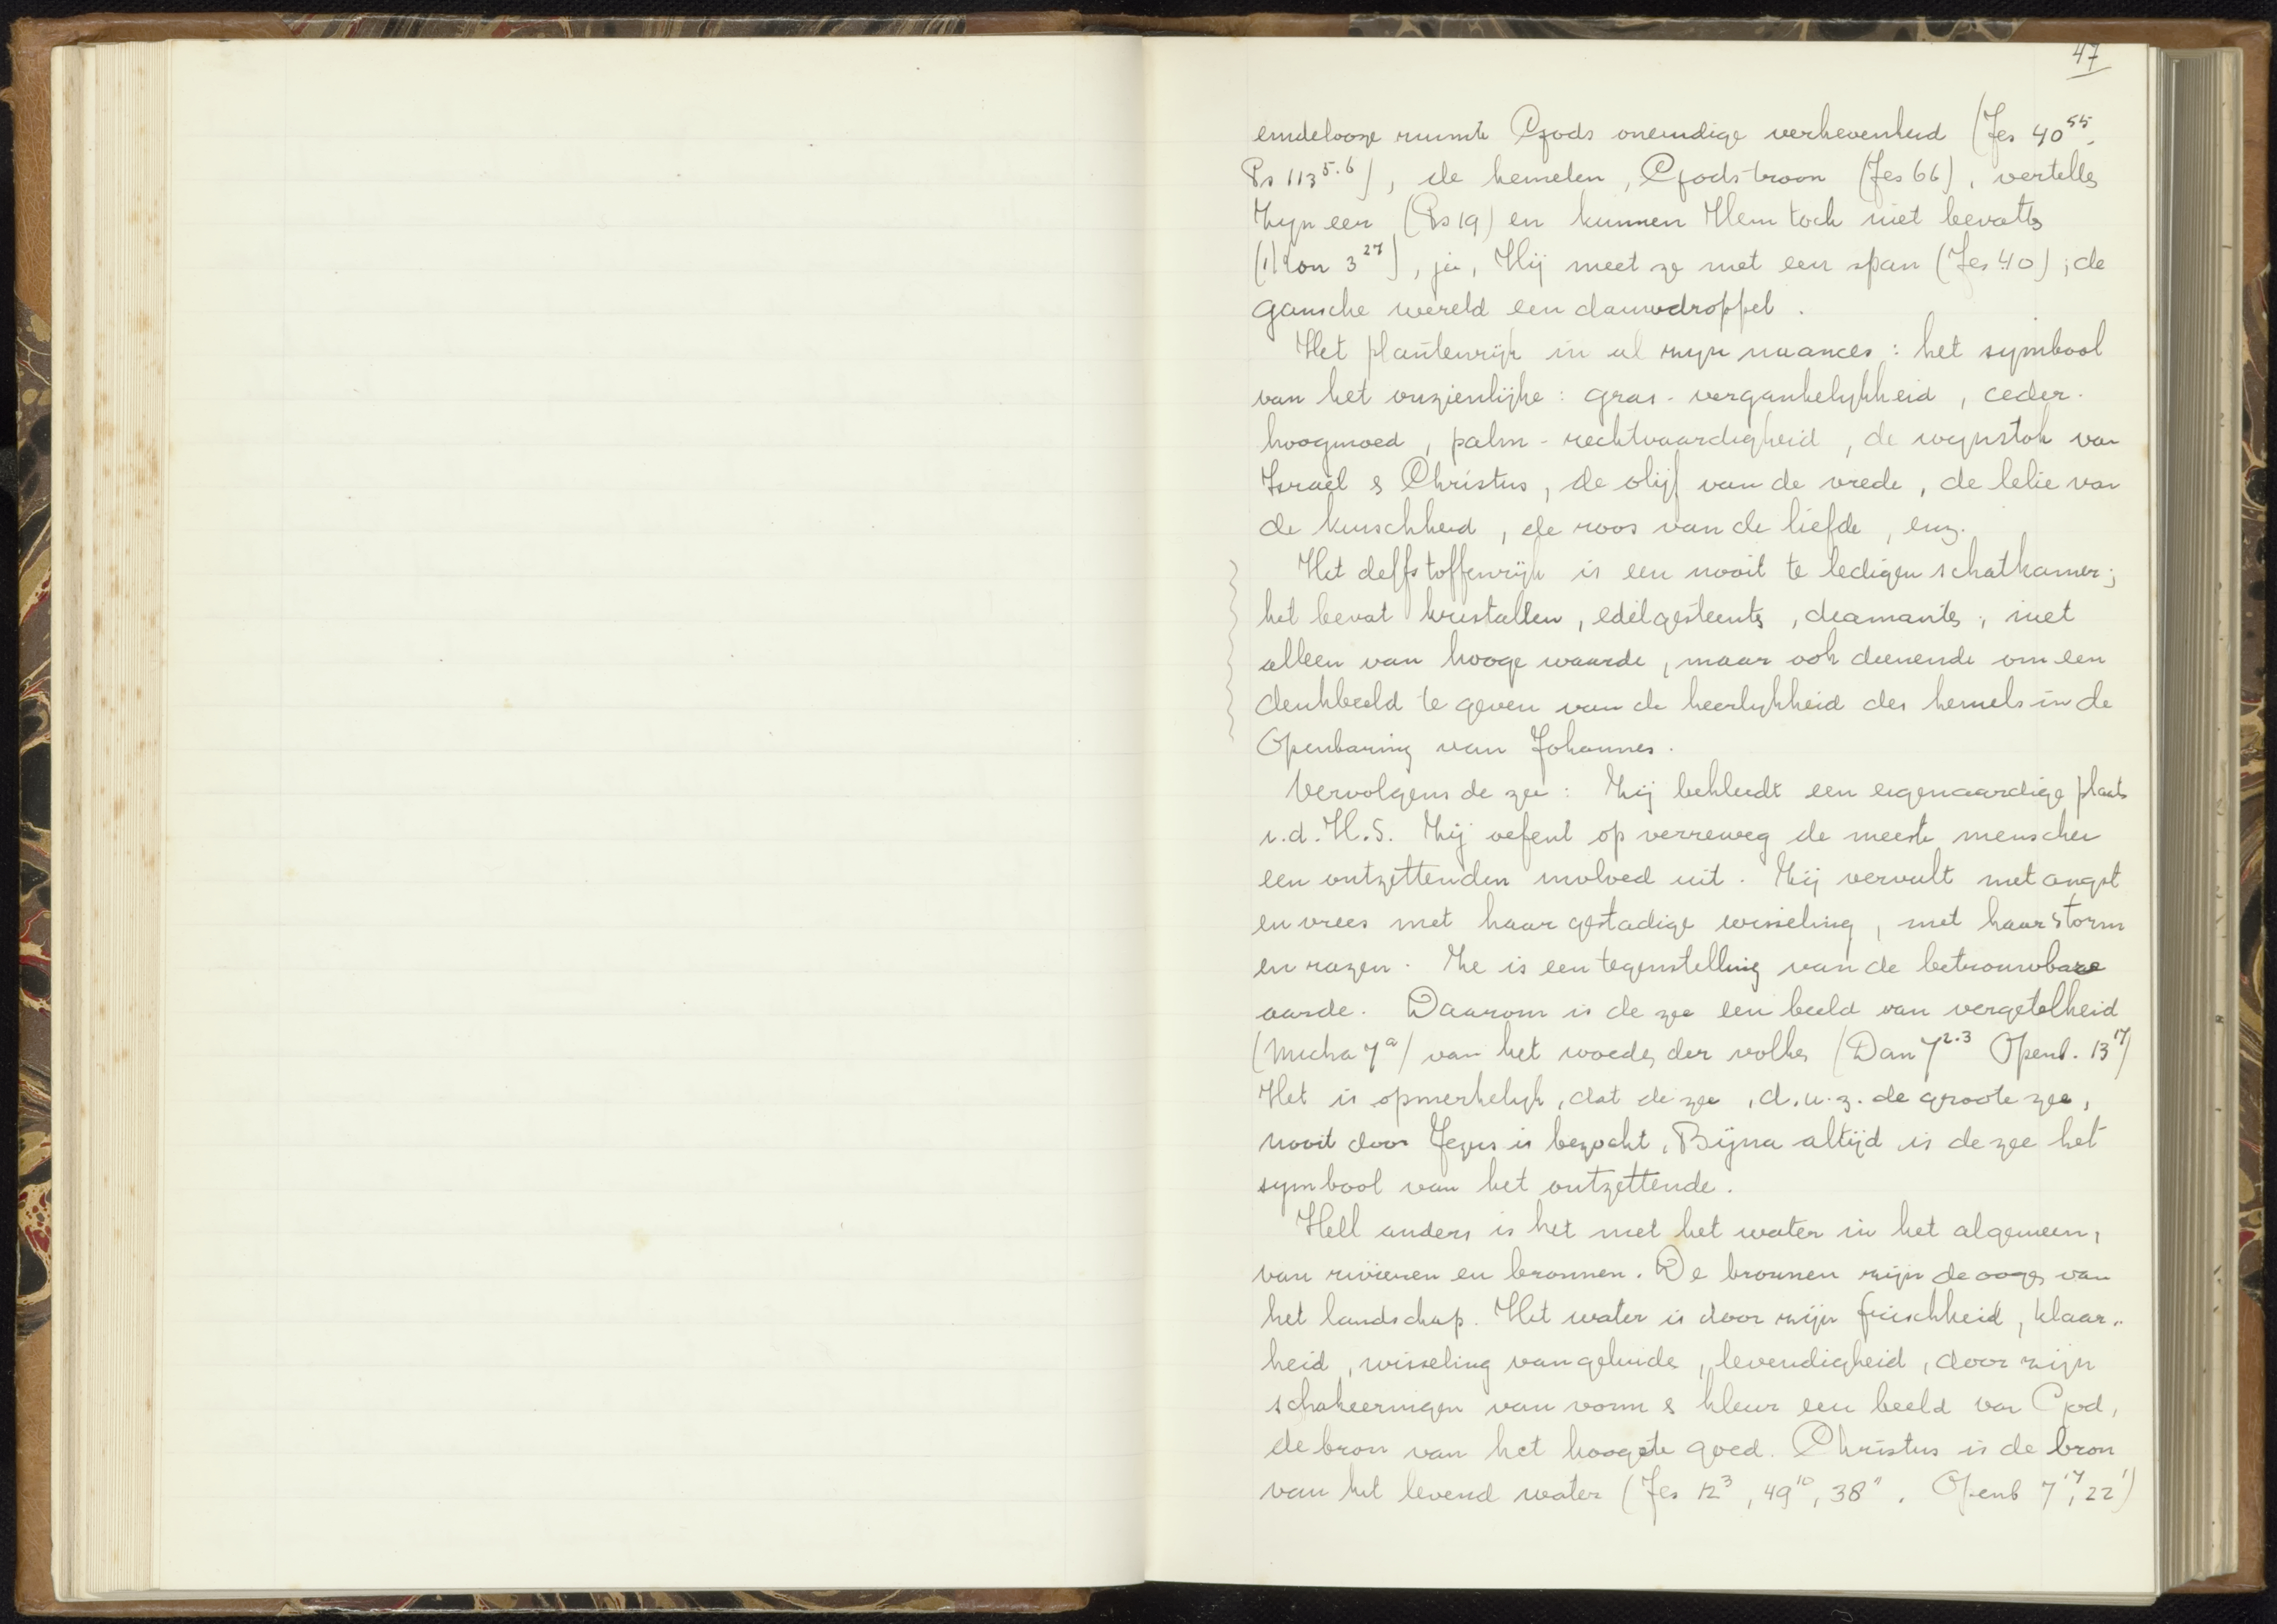 47
eindelooze ruimte Gods oneindige verhevenheid (Jes 40 55.
Ps 113 5.6), de hemelen, Gods troon (Jes 66), vertellen
Zijn eer (Ps 19) en kunnen Hem toch niet bevatten
(1 Kon 3 27), ja, Hij meet ze met een span (Jes 40); de
gansche wereld een dauwdroppel.
Het plantenrijk in al zijn nuances: het symbool
van het onzienlijke: gras - vergankelijkheid, ceder -
hoogmoed, palm - rechtvaardigheid, de wijnstok van
Israël & Christus, de olijf van de vrede, de lelie van
de kuischheid, de roos van de liefde, enz.
Het delfstoffenrijk is een nooit te ledigen schatkamer;
het bevat kristallen, edelgesteenten, diamanten, niet
alleen van hooge waarde, maar ook dienende om een
denkbeeld te geven van de heerlijkheid des hemels in de
Openbaring van Johannes.
Vervolgens de zee: Zij bekleedt een eigenaardige plaats
i.d. H.S. Zij oefent op verreweg de meeste menschen
een ontzettenden invloed uit. Zij vervult met angst
en vrees met haar gestadige wisseling, met haar storm
en razen. Ze is een tegenstelling van de betrouwbare
aarde. Daarom is de zee een beeld van vergetelheid
(Micha 7 a) van het woeden der volken (Dan 7 2.3 Openb. 13 17)
Het is opmerkelijk, dat de zee, d.w.z. de groote zee,
nooit door Jezus is bezocht. Bijna altijd is de zee het
symbool van het ontzettende.
Heel anders is het met het water in het algemeen,
van rivieren en bronnen. De bronnen zijn de oogen van
het landschap. Het water is door zijn frischheid, klaar-
heid, wisseling van geluiden, levendigheid, door zijn
schakeeringen van vorm & kleur een beeld van God,
de bron van het hoogste goed. Christus is de bron
van het levend water (Jes 12 3, 49 10, 38 11. Openb 7 17, 22 1)